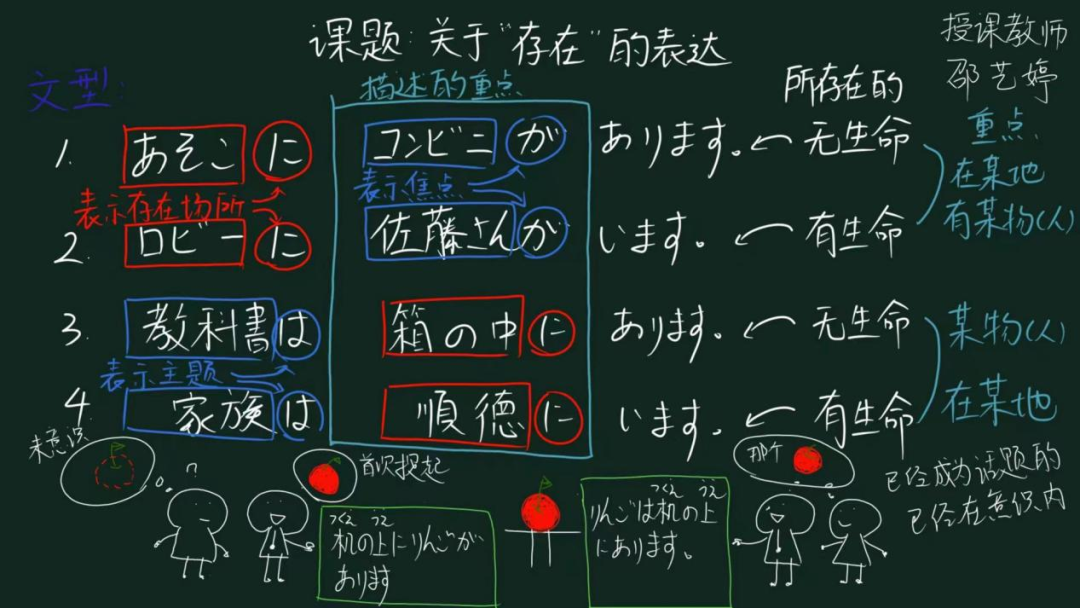 课题:关于"存在"的表达
授课教师
邵艺婷
文型:
描述的重点
所存在的
1. あそこに コンビニが あります。← 无生命
表示存在场所
表示焦点
2. ロビーに 佐藤さんが います。← 有生命
重点
在某地
有某物(人)
3. 教科書は 箱の中に あります。← 无生命
表示主题
4. 家族は 順徳に います。← 有生命
某物(人)
在某地
未意识
?
首次提起
つくえ うえ
机の上にりんごが
あります
つくえ うえ
りんごは机の上
にあります。
那个
已经成为话题的
已经在意识内